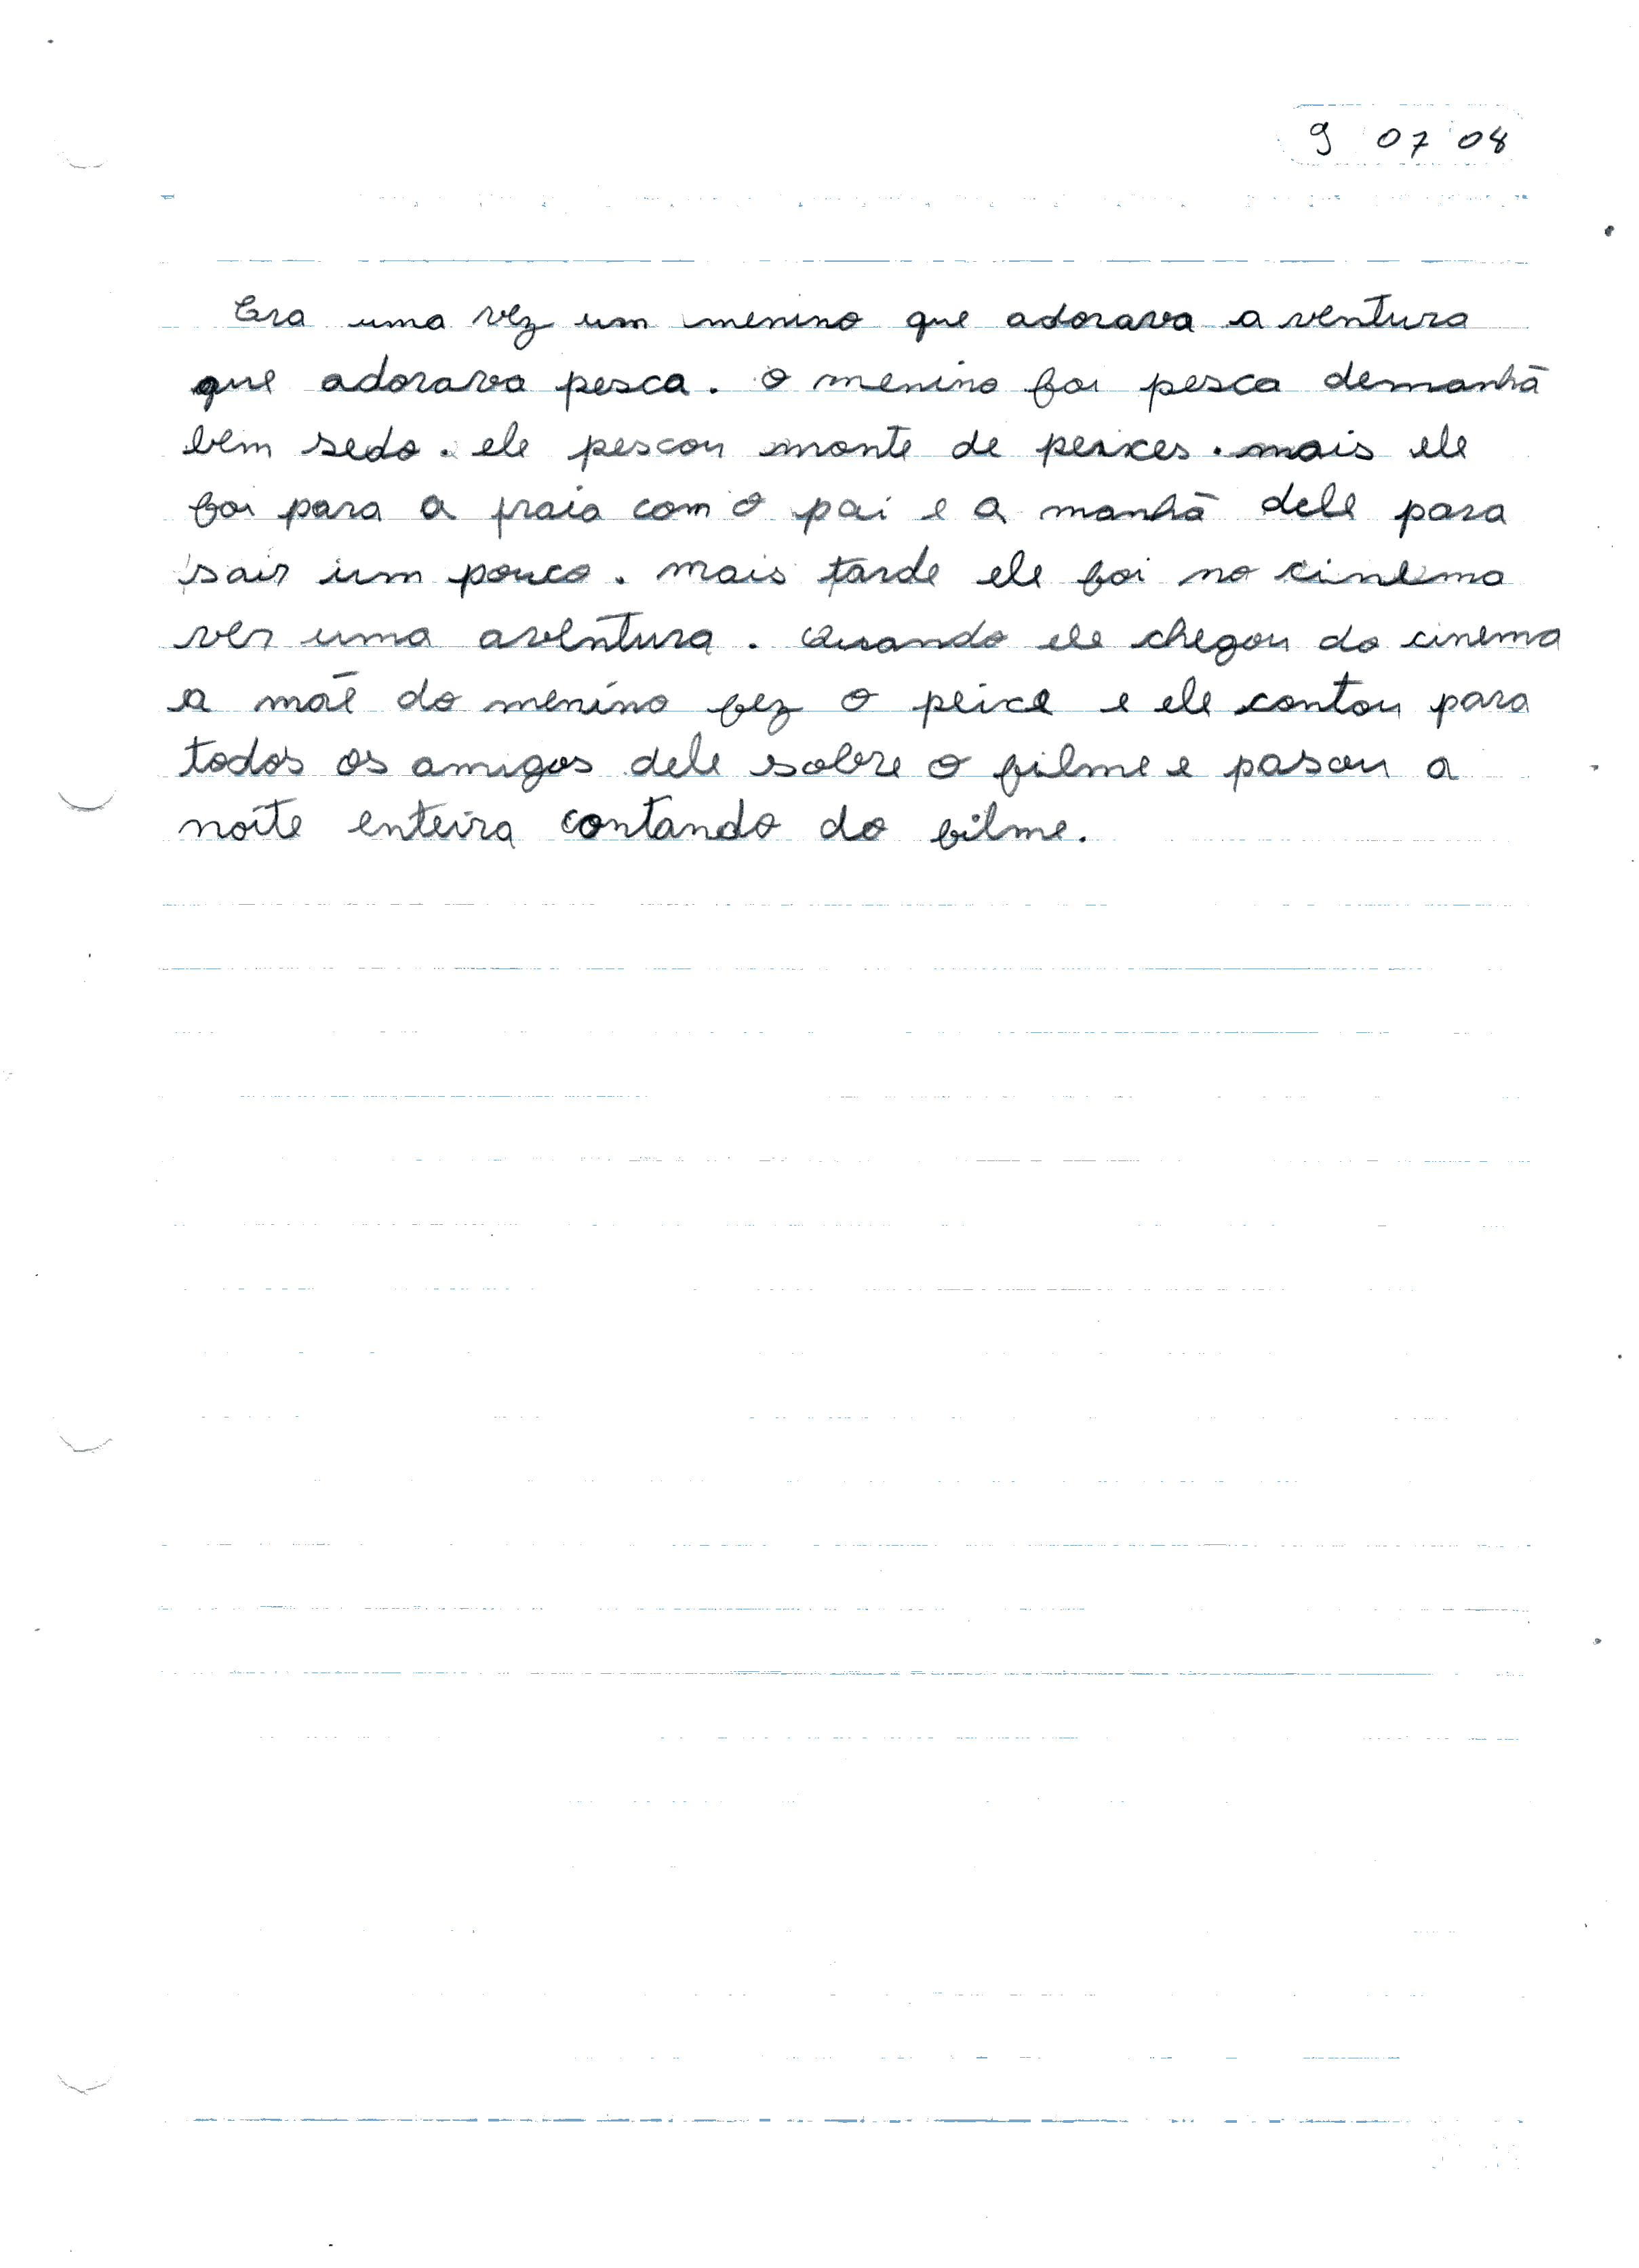 9 07 08
Era uma vez um menino que adorava a ventura
que adorava pesca. o menino foi pesca demanhã
bem sedo. ele pescou monte de peixes. mais ele
foi para a praia com o pai e a manhã dele para
sair um pouco. mais tarde ele foi no cinema
ver uma aventura. Quando ele chegou do cinema
a mãe do menino fez o peixe e ele contou para
todos os amigos dele sobre o filme e pasou a
noite enteira contando do filme.